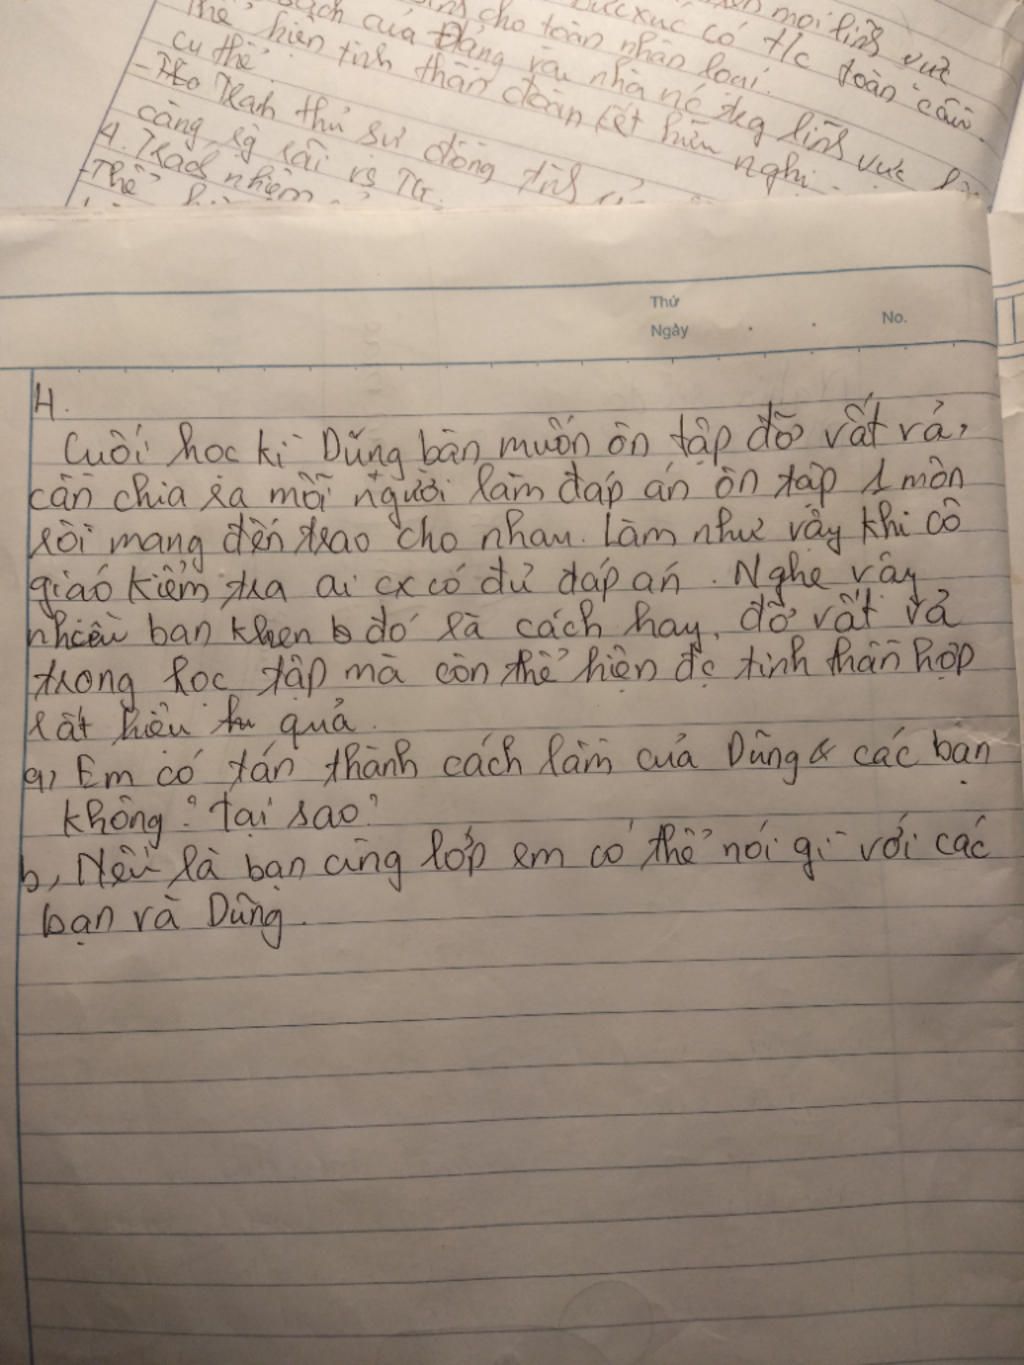 mọi lĩnh vực
cho toàn nhân loại.
bức xúc có t/c toàn cầu.
sách của Đảng và nhà nc trg lĩnh vực
thể hiện tinh thần đoàn kết hữu nghị.
cụ thể.
- Tranh thủ sự đồng tình
càng rg rãi vs
4. Trách nhiệm
- Thể
Thứ
Ngày
No.
4.
Cuối học kì Dũng bàn muốn ôn tập đỡ vất vả,
cần chia ra mỗi người làm đáp án ôn tập 1 môn
rồi mang đến trao cho nhau. Làm như vậy khi cô
giáo kiểm tra ai cx có đủ đáp án. Nghe vậy
nhiều bạn khen đó là cách hay, đỡ vất vả
trong học tập mà còn thể hiện đc tinh thần hợp
rất hiệu quả.
a, Em có tán thành cách làm của Dũng & các bạn
không? Tại sao?
b, Nếu là bạn cùng lớp em có thể nói gì với các
bạn và Dũng.